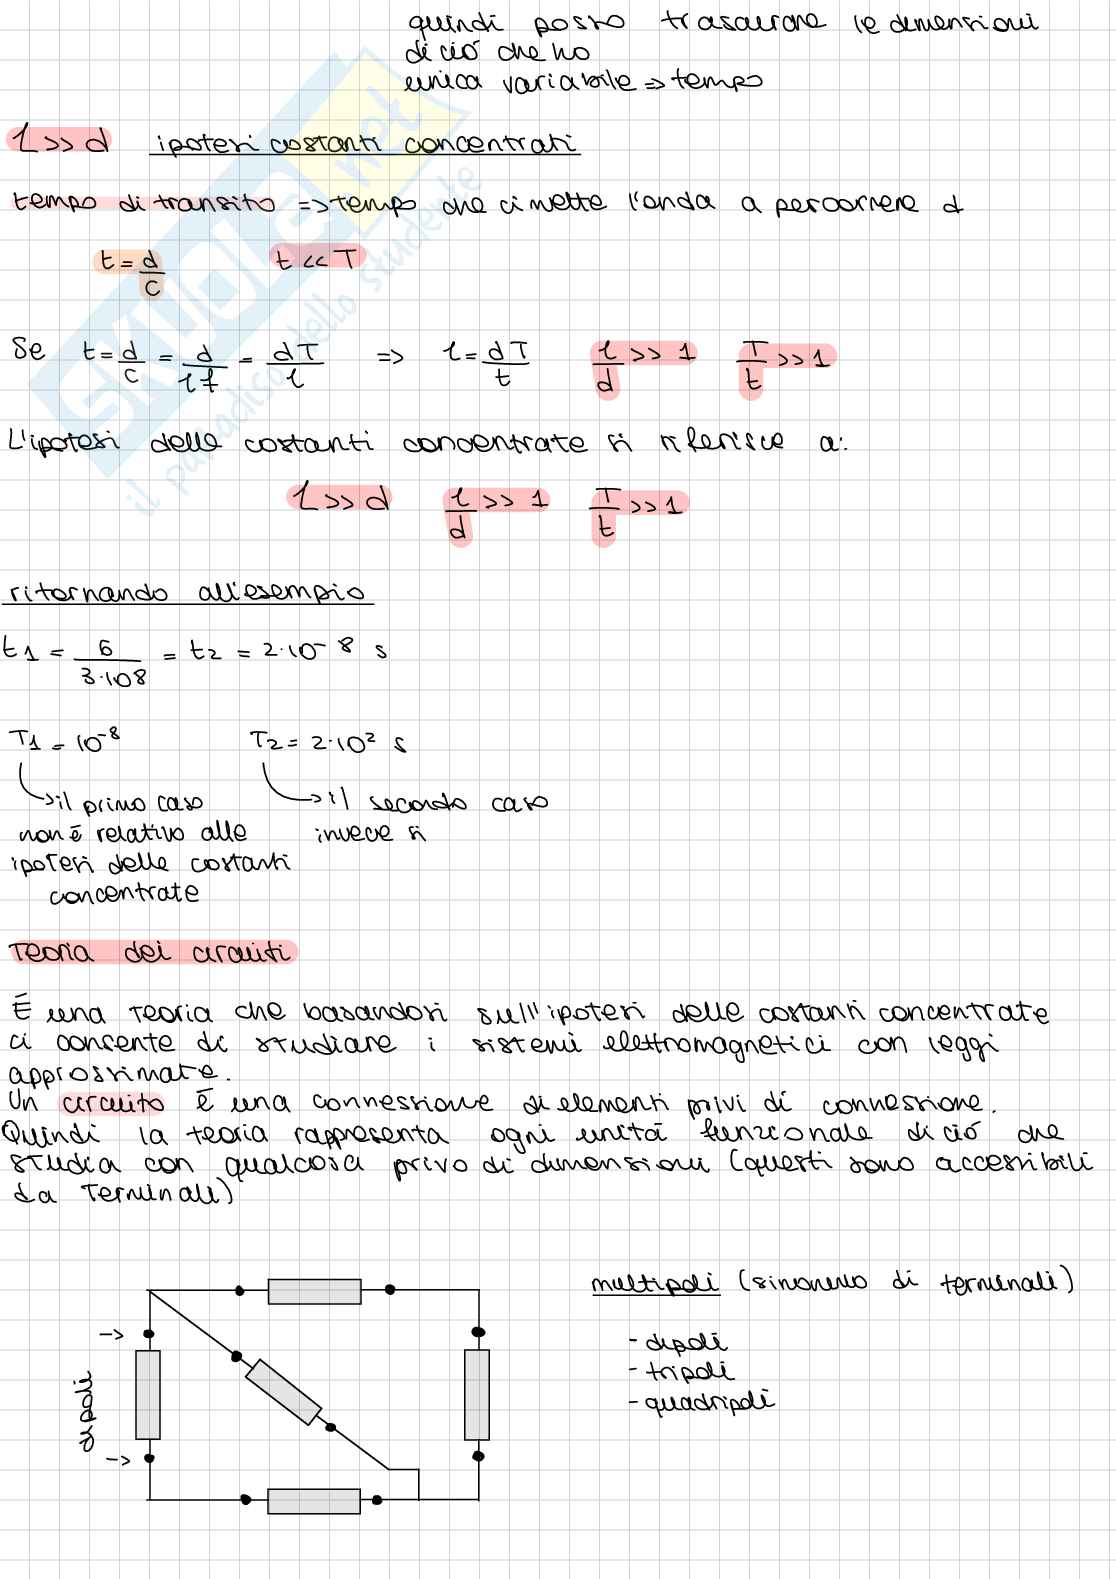 quindi posso trascurare le dimensioni
di ciò che ho
unica variabile => tempo
l >> d ipotesi costanti concentrati
tempo di transito => tempo che ci mette l'onda a percorrere d
t = d/c t << T
Se t = d/c = d/(l f) = dT/l => l = dT/t l/d >> 1 T/t >> 1
L'ipotesi delle costanti concentrate si riferisce a:
l >> d l/d >> 1 T/t >> 1
ritornando all'esempio
t1 = 6/(3·10^8) = t2 = 2·10^-8 s
T1 = 10^-8 T2 = 2·10^2 s
->il primo caso ->il secondo caso
non è relativo alle invece si
ipotesi delle costanti
concentrate
Teoria dei circuiti
È una teoria che basandosi sull'ipotesi delle costanti concentrate
ci consente di studiare i sistemi elettromagnetici con leggi
approssimate.
Un circuito è una connessione di elementi privi di connessione.
Quindi la teoria rappresenta ogni unità funzionale di ciò che
studia con qualcosa privo di dimensioni (questi sono accessibili
da terminali)
multipoli (sinonimo di terminali)
->
- dipoli
- tripoli
dipoli
- quadripoli
->
SKUOLA.net
il paradiso dello studente